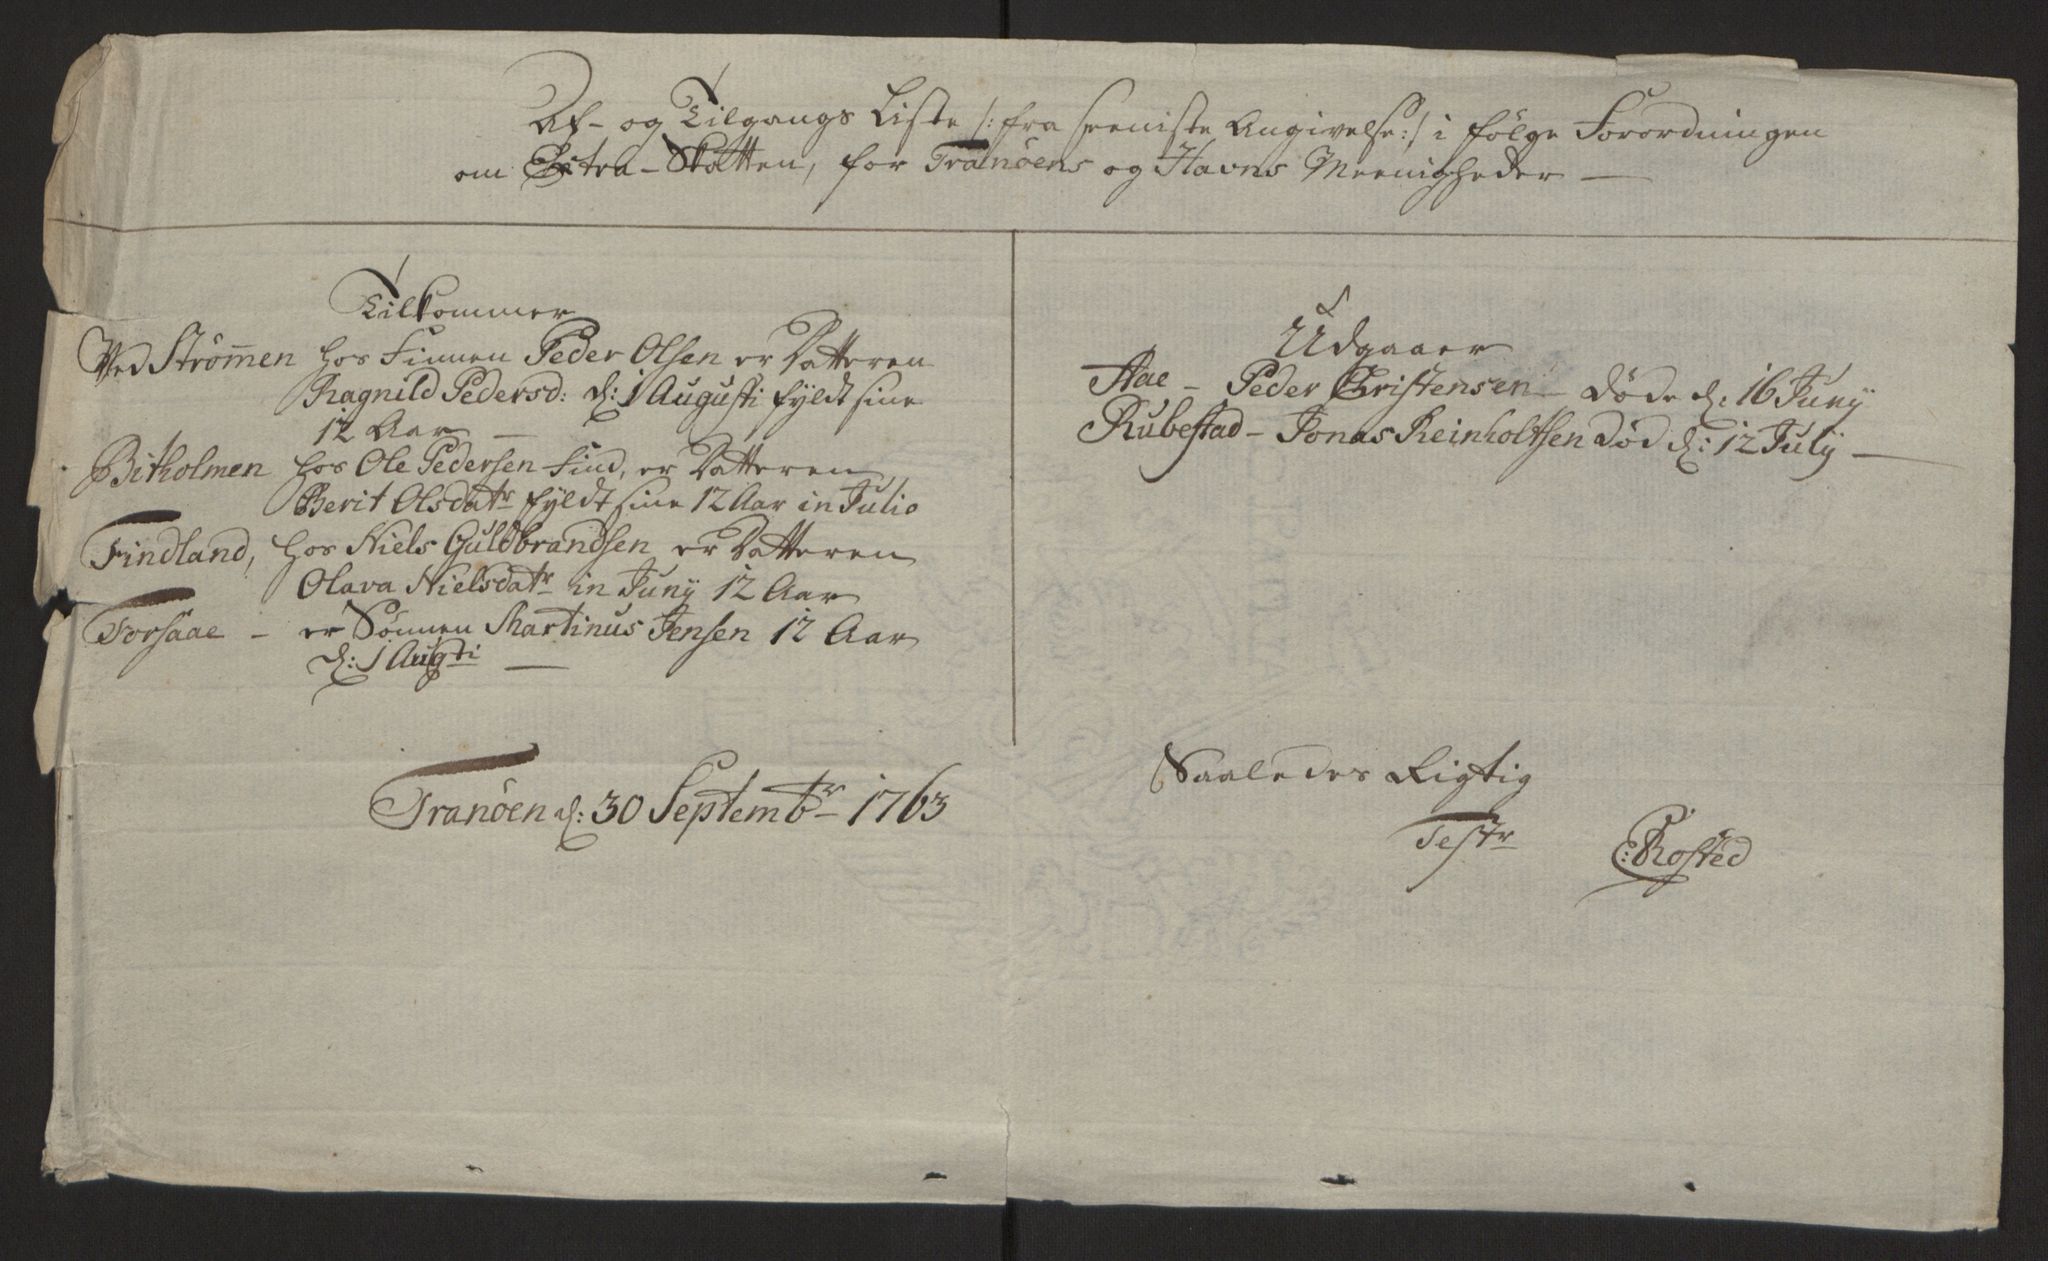 Af- og Tilgangs Liste /: fra seeniste Angivelse :/ i følge Forordningen
om Extra-Skatten, for Tranöens og Havns Meenigheder —
Tilkommer
Ved Strömmen hos Finnen Peder Olsen er Datteren
Ragnild Pedersd: d: 1 Augusti fyldt sine
12 Aar —
Bitholmen hos Ole Pedersen Find, er Datteren
Berit Olsdatr fyldt sine 12 Aar in Julio
Findland, hos Niels Guldbrandsen er Datteren
Olava Nielsdatr in Juny 12 Aar
Forsaae - er Sønnen Martinus Jensen 12 Aar
d: 1 Augsti —
Udgaaer
Aae - Peder Christensen - døde d: 16 Juny
Rubestad - Jonas Reinholtsen død d: 12 July —
Tranöen d: 30 Septembr 1763
Saaledes Rigtig
Testr
C: Rosted